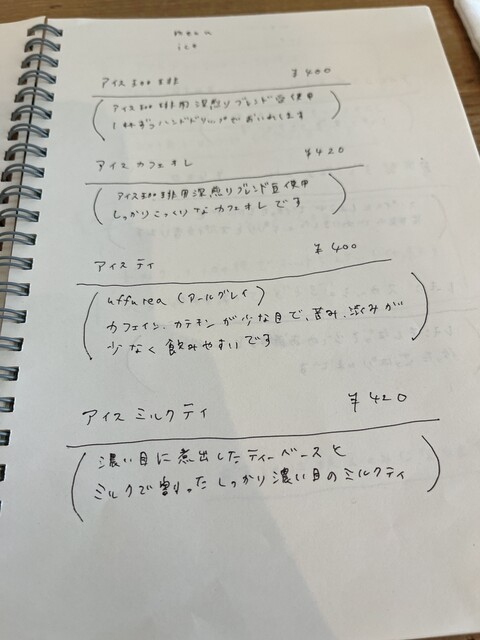 menu
ice
アイス珈琲 ¥400
(アイス珈琲用深煎りブレンド豆使用
1杯ずつハンドドリップでおいれします)
アイスカフェオレ ¥420
(アイス珈琲用深煎りブレンド豆使用
しっかりこっくりなカフェオレです)
アイスティ ¥400
(uffu tea (アールグレイ)
カフェイン、カテキンが少な目で、苦み、渋みが
少なく飲みやすいです)
アイスミルクティ ¥420
(濃い目に煮出したティーベースと
ミルクで割ったしっかり濃い目のミルクティ)